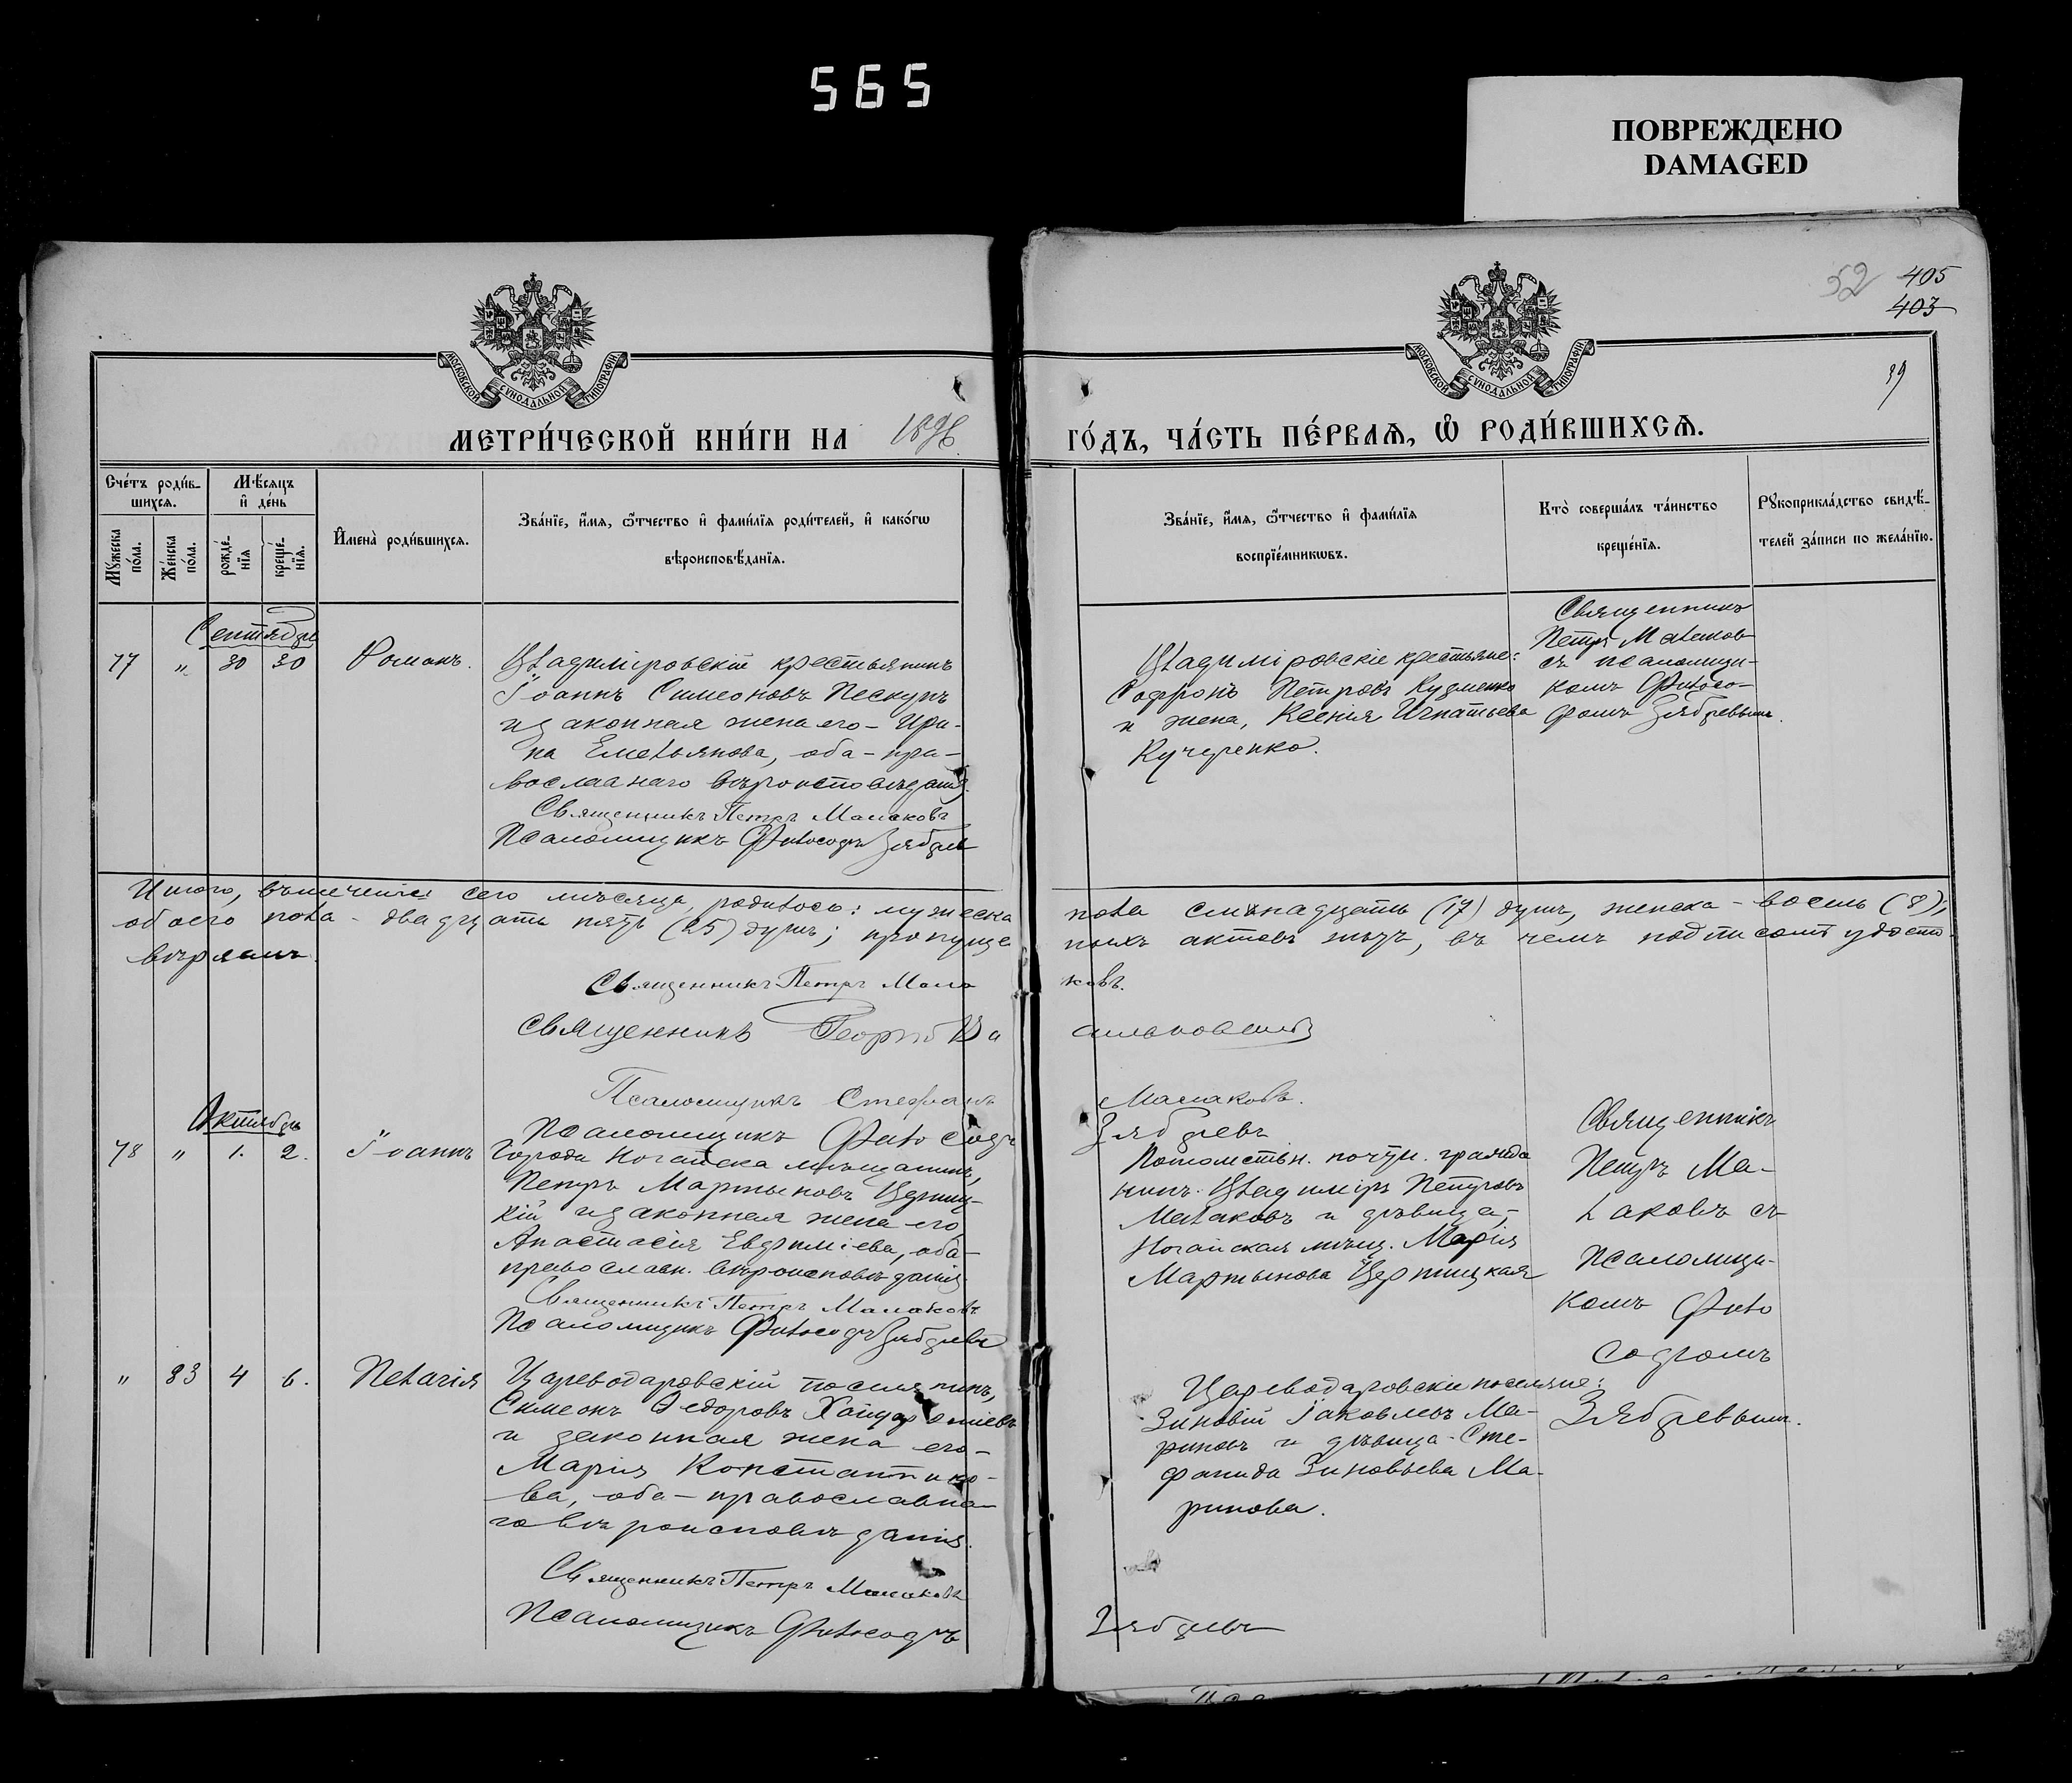 565
ПОВРЕЖДЕНО
DAMAGED
52 405
403
39
МОСКОВСКОЙ СѴНОДАЛЬНОЙ ТИПОГРАФІИ
МОСКОВСКОЙ СѴНОДАЛЬНОЙ ТИПОГРАФІИ
МЕТРИ́ЧЕСКОЙ КНИ́ГИ НА 1896
ГО́ДЪ, ЧА́СТЬ ПЕ́РВАѦ, Ѡ҆ РОДИ́ВШИХСѦ.
Сче́тъ роди́в-
шихсѧ.
Мꙋ́жеска по́ла.
Же́нска по́ла.
Мѣ́сѧцъ
и҆ де́нь
рожде́-
нїѧ
креще́-
нїѧ.
И҆мена̀ роди́вшихсѧ.
Зва́нїе, и҆́мѧ, ѻ҆́тчество и҆ фами́лїѧ роди́телей, и҆ како́гѡ
вѣроисповѣ́данїѧ.
Зва́нїе, и҆́мѧ, ѻ҆́тчество и҆ фами́лїѧ
воспрїе́мникѡвъ.
Кто̀ соверша́лъ та́инство
креще́нїѧ.
Рꙋкоприкла́дство свидѣ́-
телей за́писи по жела́нїю.
Сентябрь
77 " 30 30 Романъ.
Владиміровскій крестьянинъ
Іоаннъ Симеоновъ Пескунъ
и законная жена его - Ири-
на Емельянова, оба - пра-
вославнаго вѣроисповѣданія.
Священникъ Петръ Малаковъ
Псаломщикъ Филосодръ Зябревъ
Владиміровскіе крестьяне:
Софронъ Петровъ Кузменко
и жена, Ксенія Игнатьева
Кучеренко.
Священникъ
Петръ Малаковъ
съ псаломщи-
комъ Филосо-
дромъ Зябревымъ.
Итого, въ теченіе сего мѣсяца, родилось: мужеска пола семнадцать (17) душъ, женска - восемь (8),
обоего пола - двадцать пять (25) душъ; пропущенныхъ актовъ нѣтъ, въ чемъ подписомъ удосто-
вѣряемъ.
Священникъ Петръ Малаковъ.
Священникъ Георгій Васильковскій
Псаломщикъ Стефанъ Малаковъ.
Псаломщикъ Филосодръ Зябревъ
Октябрь
78 " 1. 2. Іоаннъ
Города Ногайска мѣщанинъ,
Петръ Мартыновъ Церниц-
кій и законная жена его
Анастасія Евфиміева, оба-
православн. вѣроисповѣданія.
Священникъ Петръ Малаковъ
Псаломщикъ Филосодръ Зябревъ
Потомствен. почтн. гражда
нинъ. Владиміръ Петровъ
Малаковъ и дѣвица,
Ногайская мѣщ. Марія
Мартынова Церницкая
Священникъ
Петръ Ма-
лаковъ съ
псаломщи-
комъ Фило
содромъ
Зябревымъ.
" 83 4 6. Пелагія
Цареводаровскій поселянинъ,
Симеонъ Ѳедоровъ
и законная жена его-
Марія Константино-
ва, оба - православна-
го вѣроисповѣданія.
Священникъ Петръ Малаковъ
Псаломщикъ Филосодръ Зябревъ
Цареводаровскіе поселяне:
Зиновій Іаковлевъ Ма-
риновъ и дѣвица - Сте-
фанида Зиновьева Ма-
ринова.